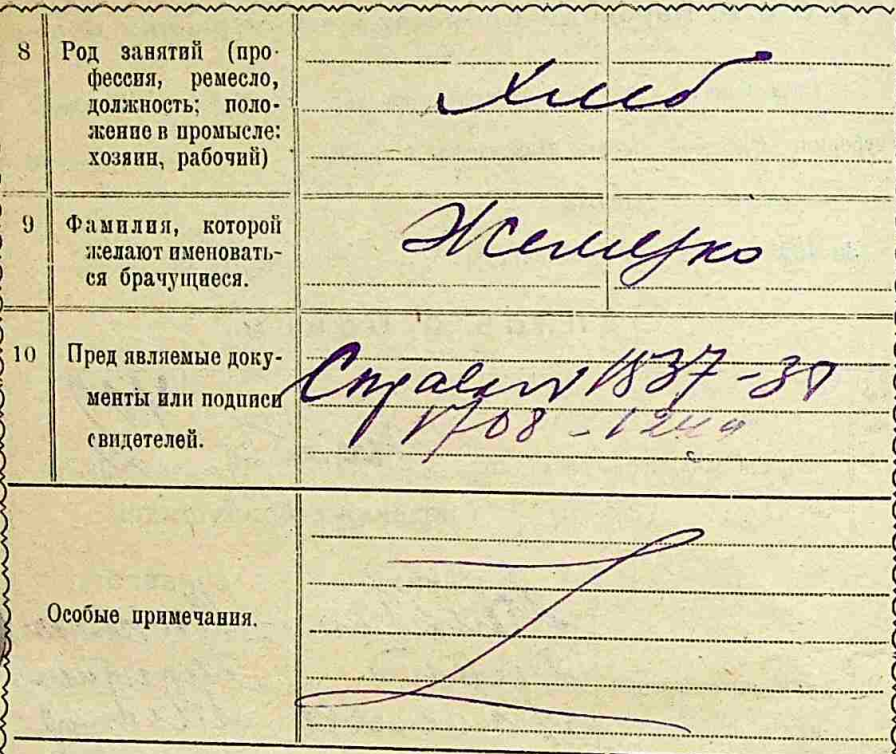 8 Род занятий (про-
фессия, ремесло,
должность; поло-
жение в промысле:
хозяин, рабочий)
Хлеб
9 Фамилия, которой
желают именовать-
ся брачущиеся.
10 Пред'являемые доку-
менты или подписи
свидетелей.
1837-38
1708-
Особые примечания.